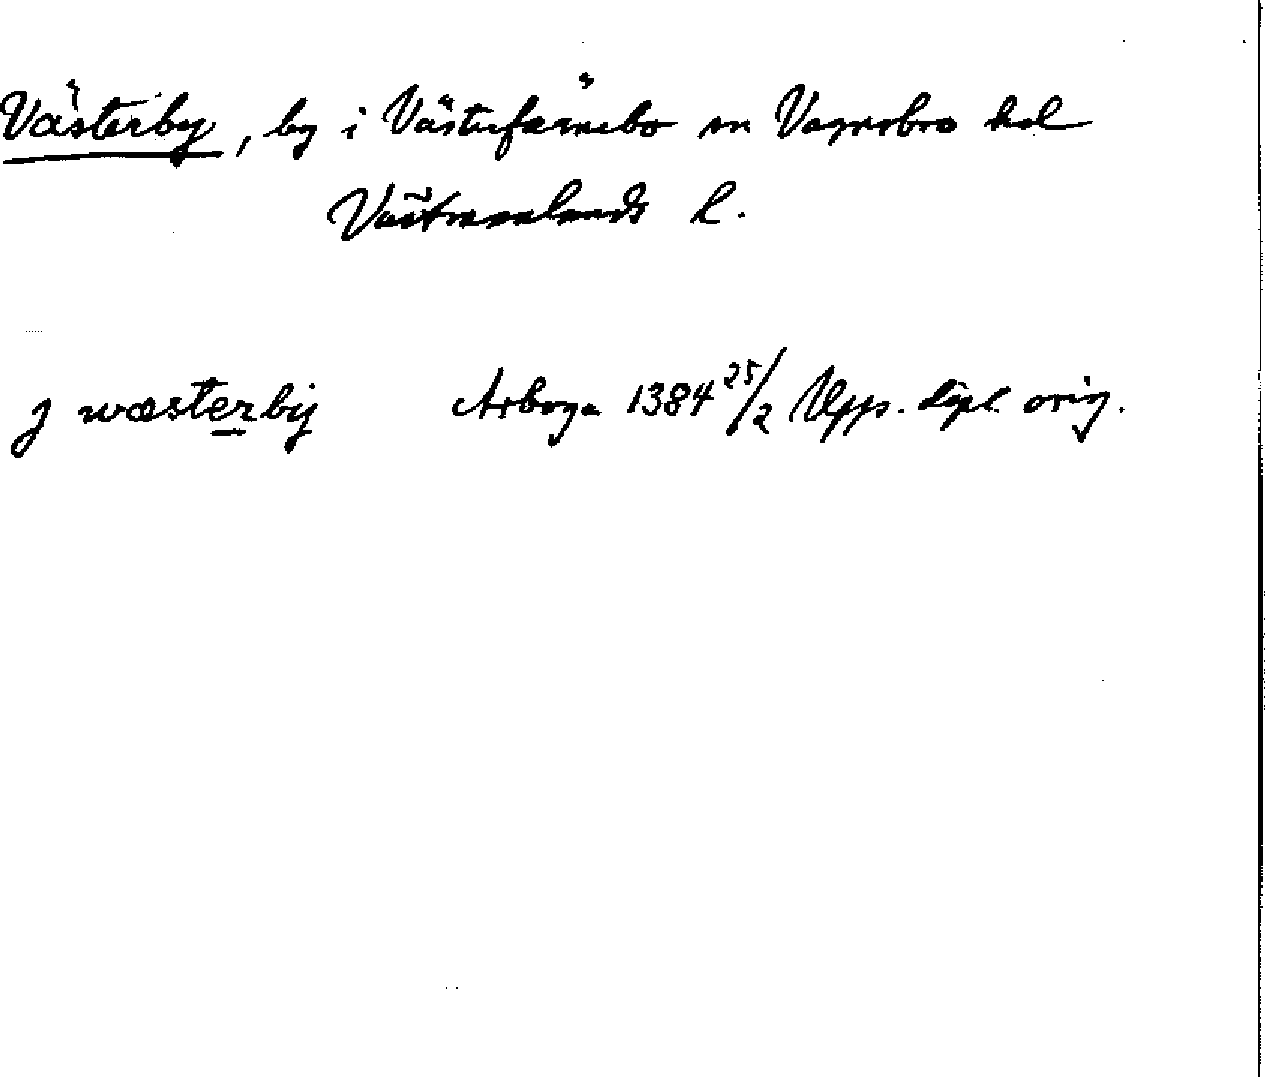 Västerby, by i Västerfärnebo sn Vagnsbro hd
Västmanlands l.
j wæsterbij Arboga 1384 25/2 Upp. dipl. orig.